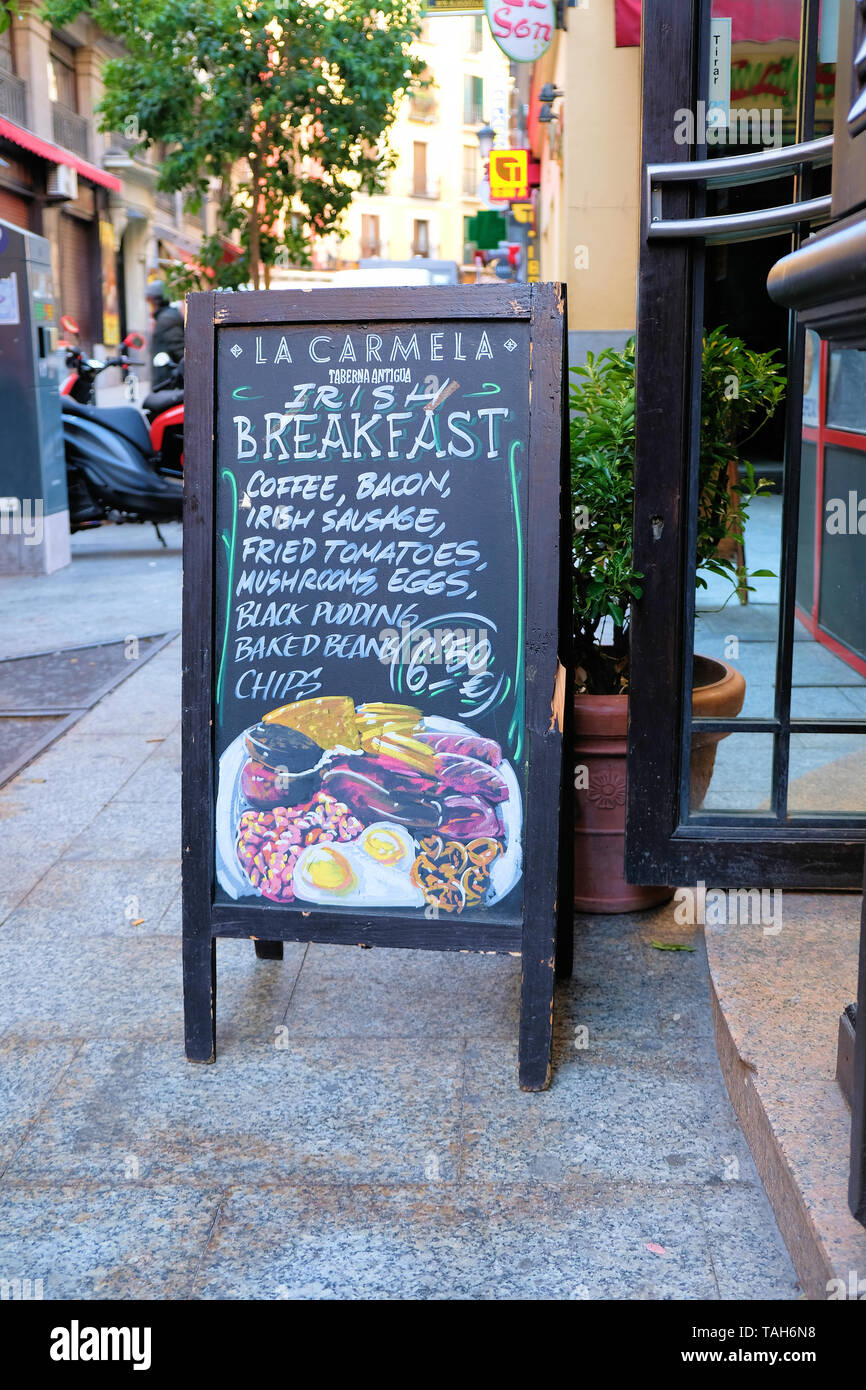 El
Son
Tirar
LA CARMELA
TABERNA ANTIGUA
IRISH
BREAKFAST
COFFEE, BACON,
IRISH SAUSAGE,
FRIED TOMATOES,
MUSHROOMS, EGGS,
BLACK PUDDING
BAKED BEANS
CHIPS
6'50
€
alamy
Image ID: TAH6N8
www.alamy.com